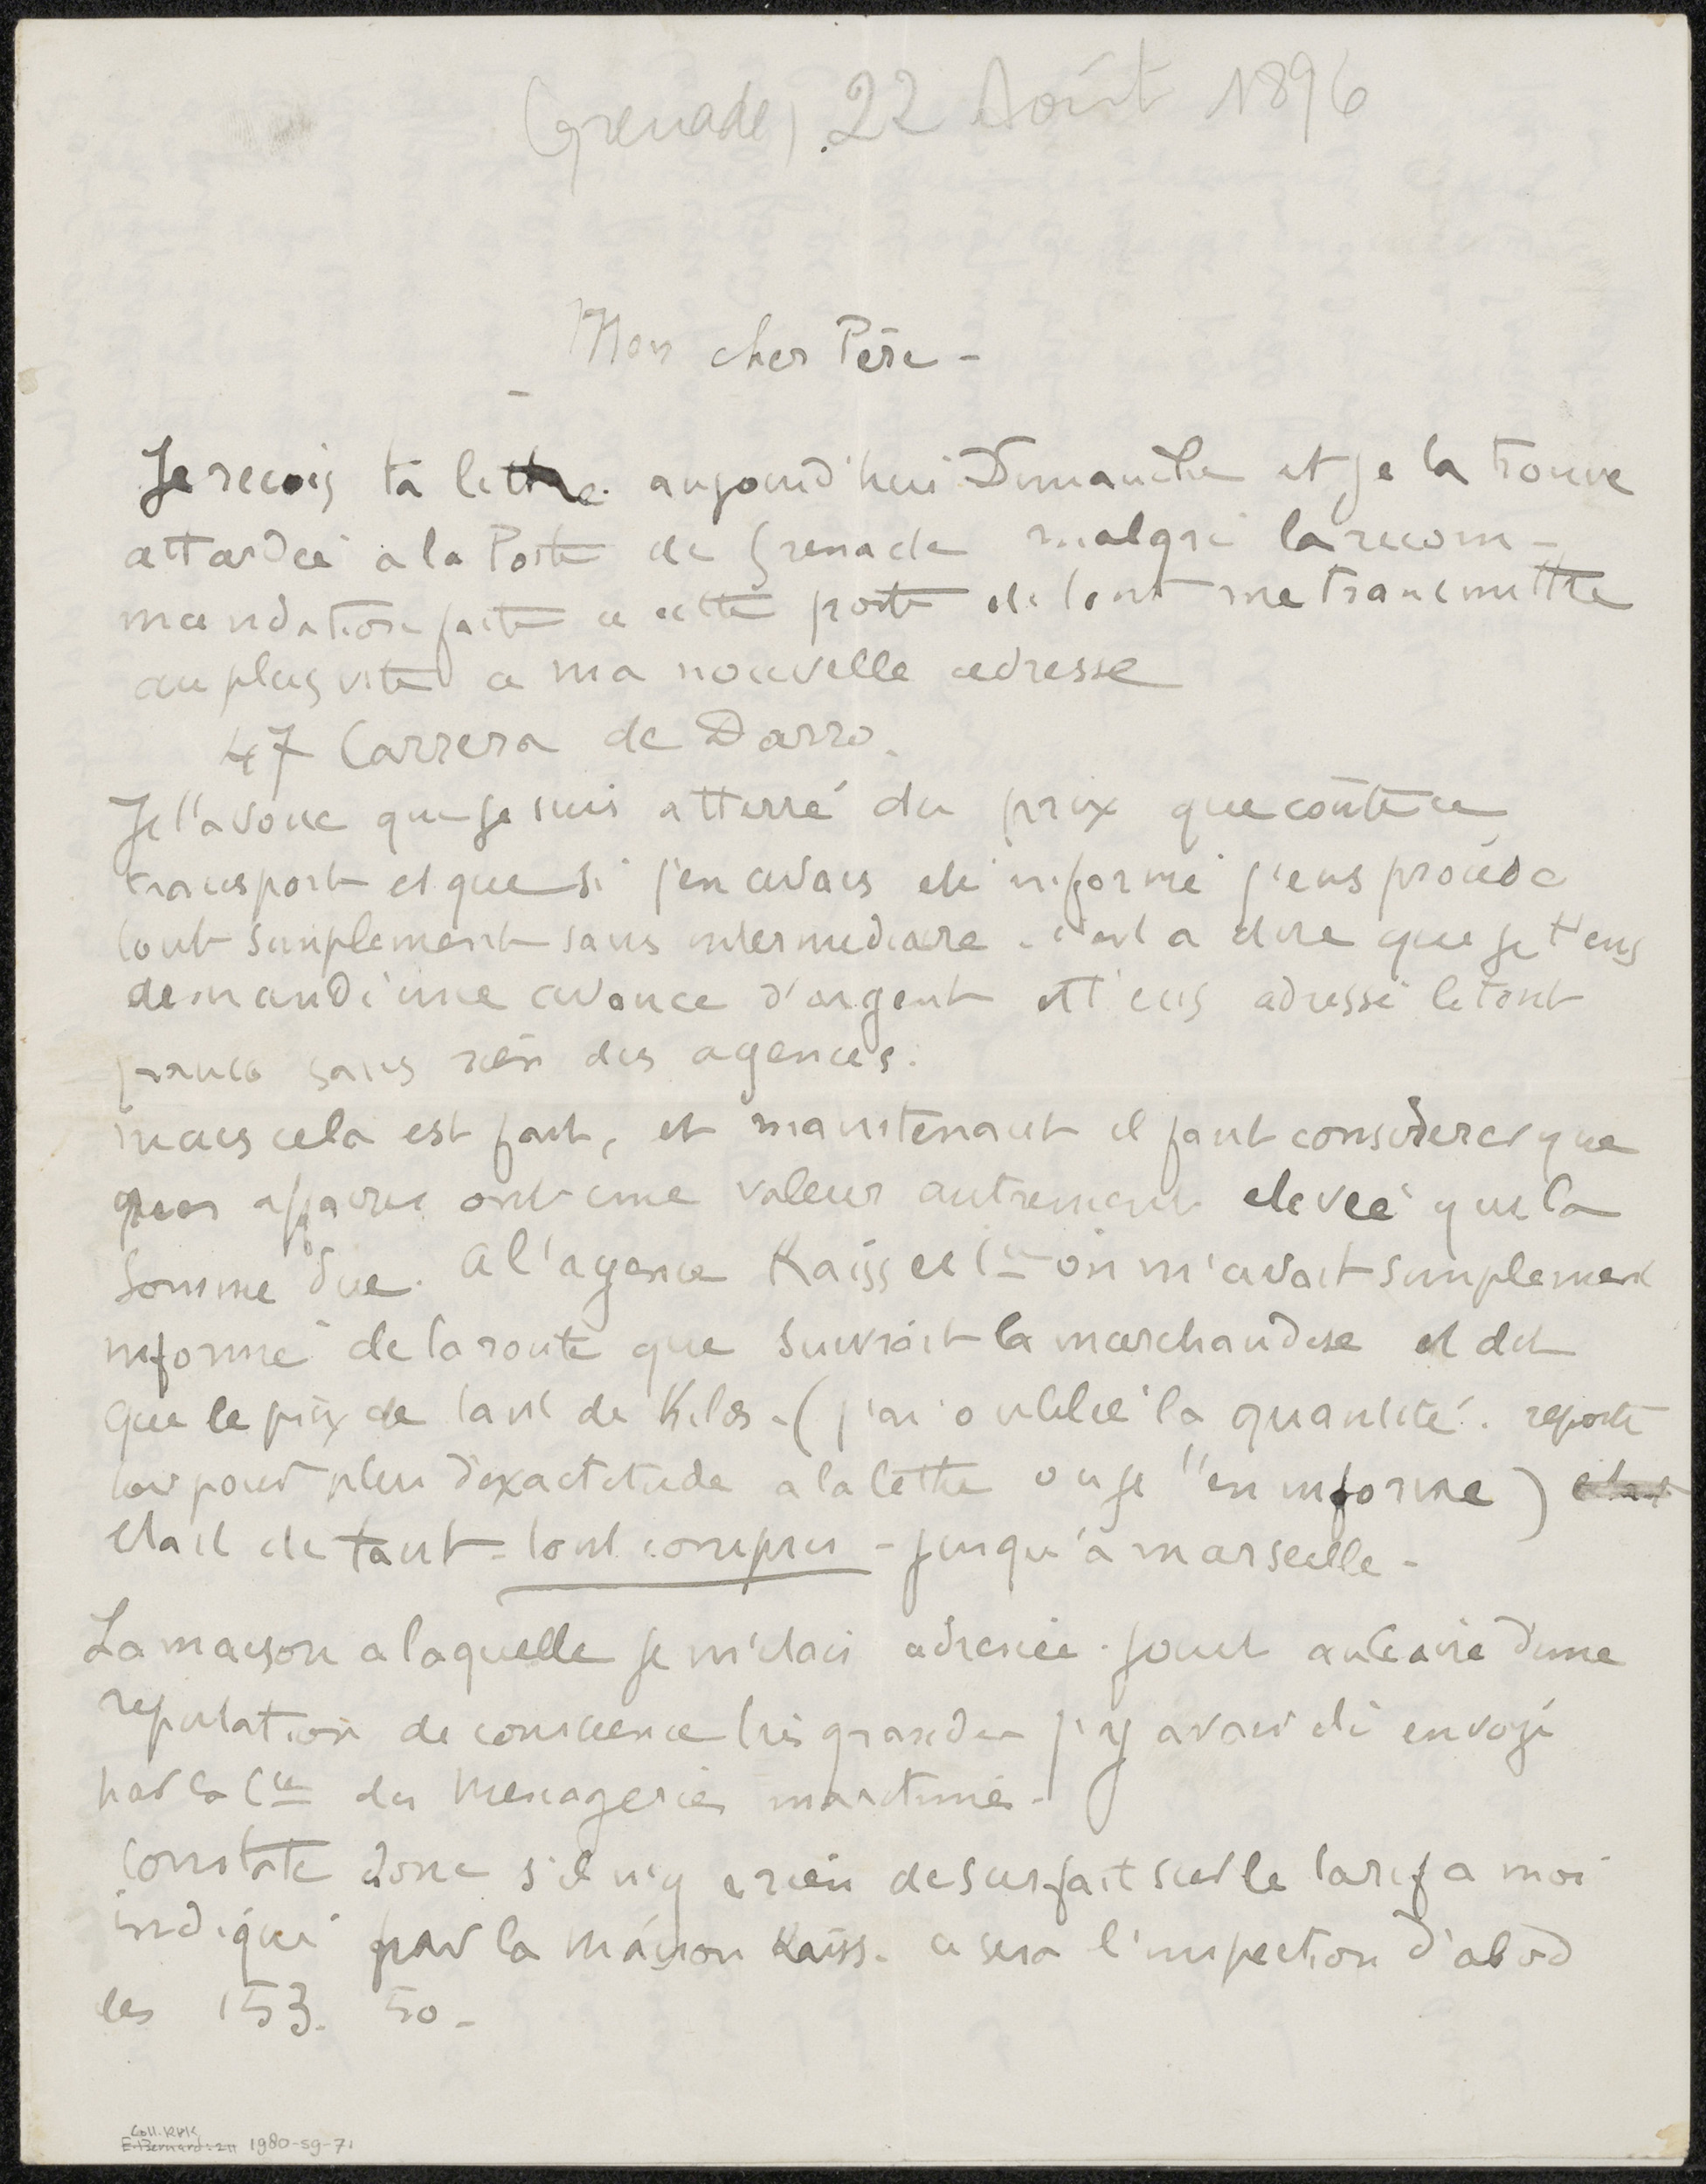 (Grenade) 22 Août 1896
Mon cher Père -
Je reçois ta lettre aujourd'hui Dimanche et je la trouve
attardée a la Poste de Grenade malgré la recom-
mandation faite a cette poste de tout me transmettre
au plus vite a ma nouvelle adresse
47 Carrera de Darro.
Je t'avoue que je suis atterré du prix que coûte ce
transport et que si j'en avais été informé j'eus procédé
tout simplement sans intermediaire - c'est a dire que je t'eus
demandé une avance d'argent et t'eus adressé le tout
franco sans rien des agences.
mais cela est fait, et maintenant il faut considerer que
mes affaires ont une valeur autrement elevée que la
somme due. A l'agence Kaiss et Cie on m'avait simplement
informé de la route que suivrait la marchandise et dit
que le prix de tant de Kilos - (j'ai oublié la quantité. reporte
toi pour plus d'exactitude a la lettre ou je t'en informe)
etait de tant - tout compris - jusqu'à marseille -
La maison a laquelle je m'étais adressée jouit au Caire d'une
reputation de conscience très grande - j'y avais été envoyé
par la Cie des Messageries maritimes -
Constate donc s'il n'y a rien de surfait sur le tarif a moi
indiqué par la maison Kaiss. ce sera l'inspection d'abord
les 153. 50 -
Coll. RPK
E. Bernard: 211 1980-59-71